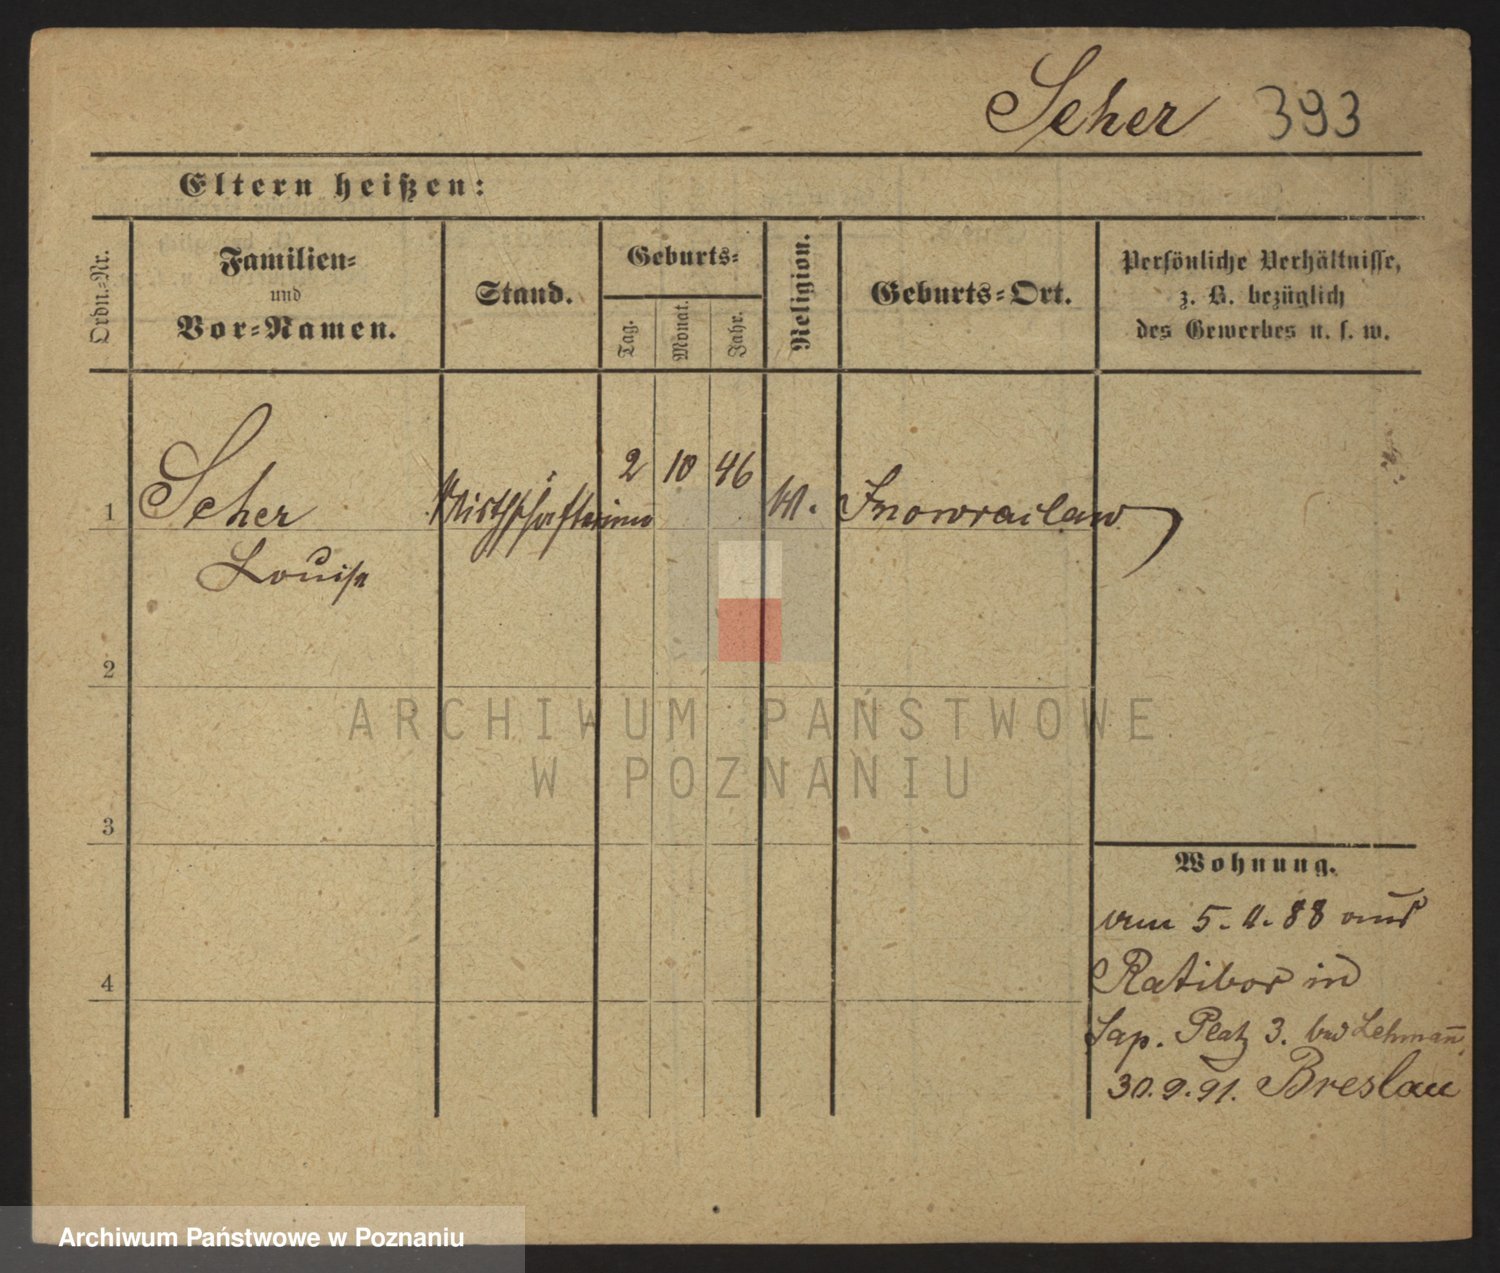 Seher 393
Eltern heißen:
Ordn.-Nr.
Familien-
und
Vor-Namen.
Stand.
Geburts-
Tag.
Monat.
Jahr.
Religion.
Geburts-Ort.
Persönliche Verhältnisse,
z. B. bezüglich
des Gewerbes u. s. w.
1 Seher Wirthschafterinn 2 10 46 Inowraclaw
Louise
2
ARCHIWUM PAŃSTWOWE
W POZNANIU
3
Wohnung.
5. 88 aus
4
Ratibor in
Sap. Platz 3. bei Lehmann
30.9.91. Breslau
Archiwum Państwowe w Poznaniu